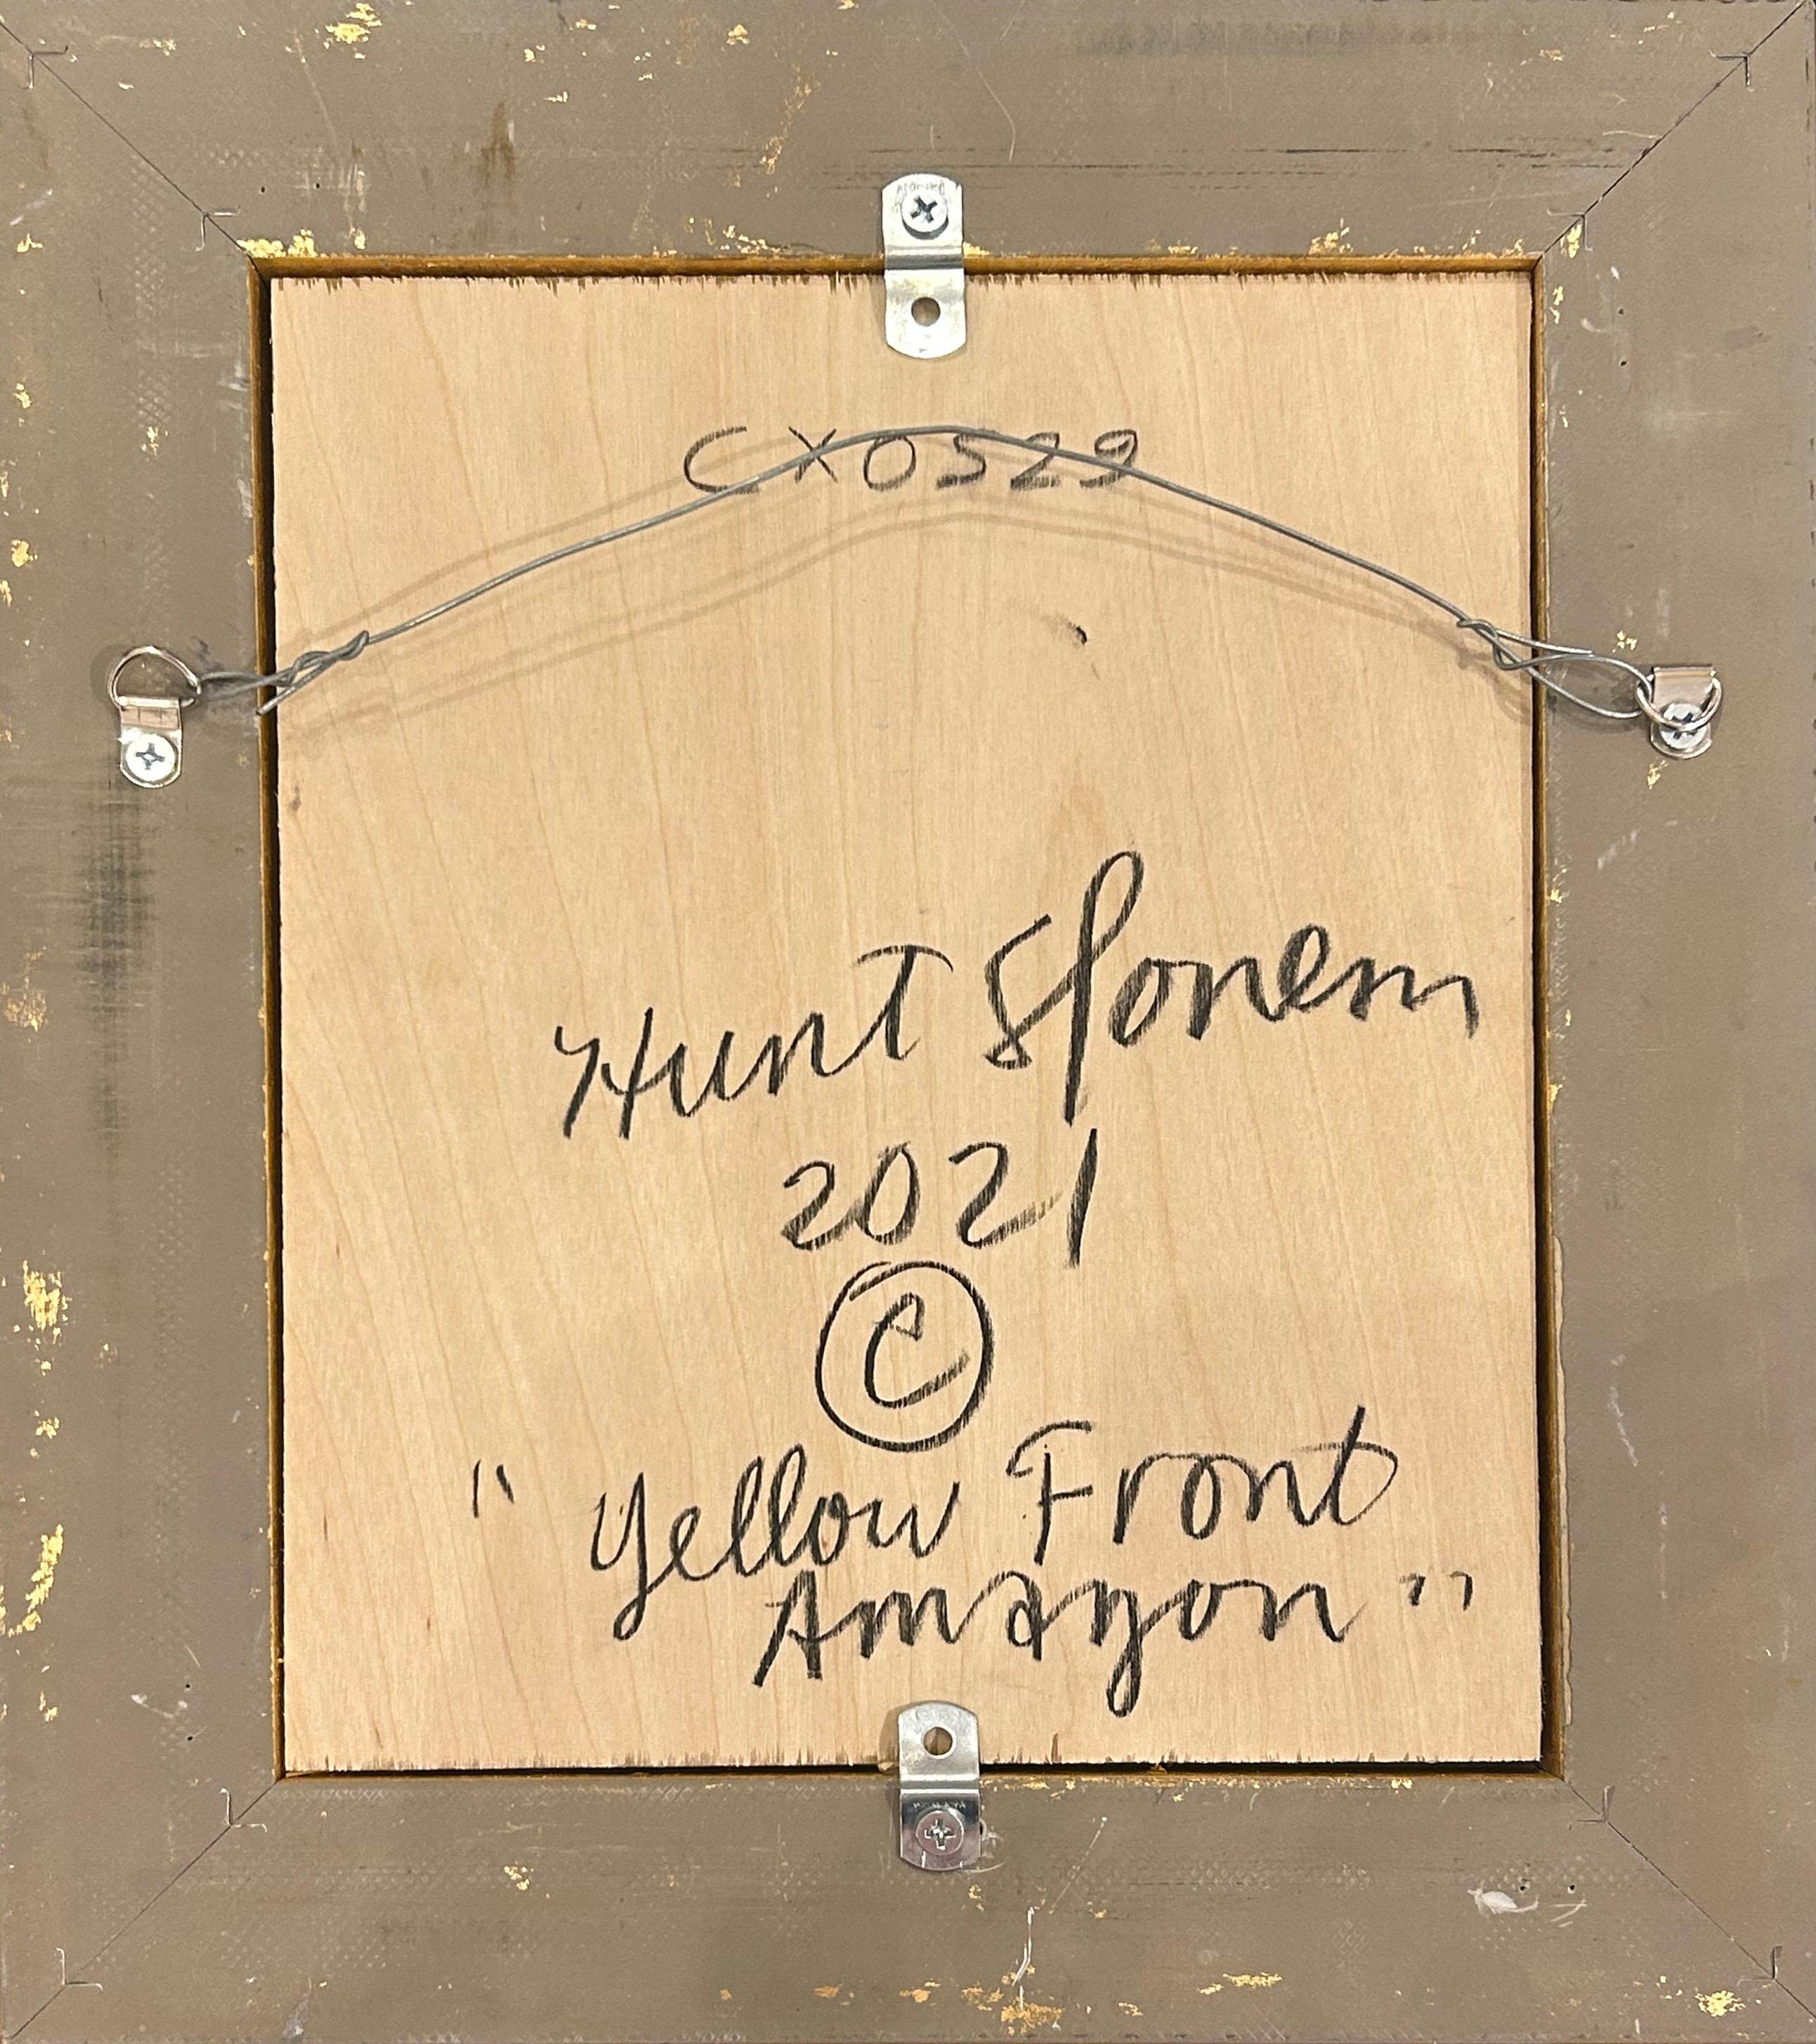 CX0529
Hunt Slonem
2021
©
"Yellow Front
Amazon"